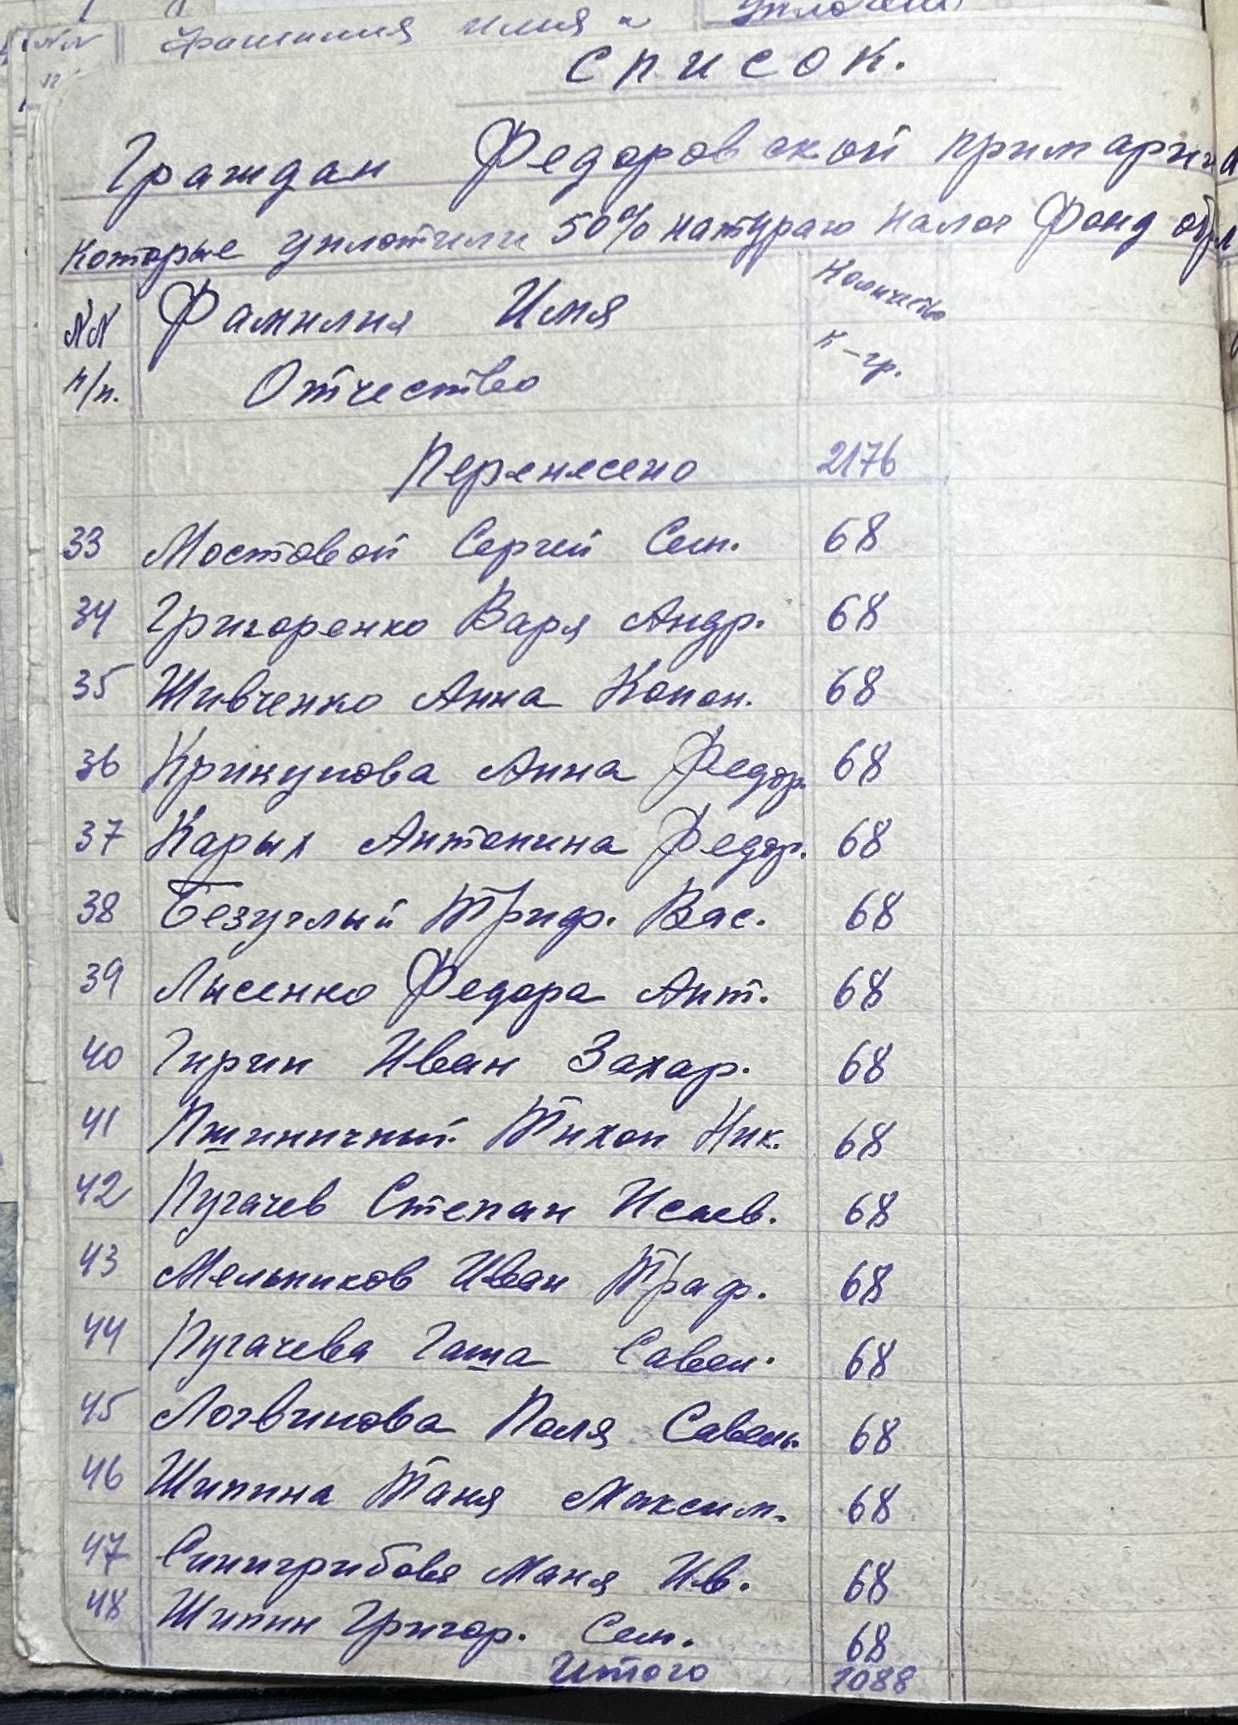 Фамилия Имя
список.
Граждан Федоровской примарии
которые уплотили 50% натураю налог Фонд
NN Фамилия Имя Количество
п/п. Отчество к-гр.
Перенесено 2176
33 Мостовой Сергей Сем. 68
34 Григоренко Варя Андр. 68
35 Шивченко Анна Конон. 68
36 Крикунова Анна Федор. 68
37 Карых Антонина Федор. 68
38 Безуглый Триф. Вас. 68
39 Лысенко Федора Ант. 68
40 Гирин Иван Захар. 68
41 Пшиничный Тихон Ник. 68
42 Пугачев Степан Исаев. 68
43 Мельников Иван Траф. 68
44 Пугачева Гаша Савел. 68
45 Логвинова Поля Савель. 68
46 Шипина Таня Максим. 68
47 Синигрибова Маня Ив. 68
48 Шипин Григор. Сем. 68
Итого 1088